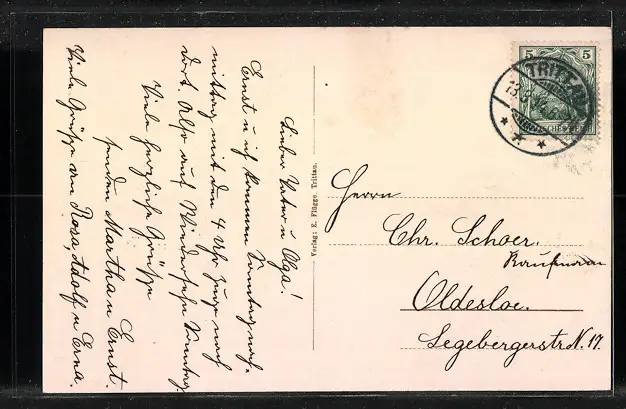 Lieber Vater u Olga!
Ernst u ich kommen Sonntag nach-
mittag mit dem 4 Uhr Zuge nach
dort. Also auf Wiedersehn Sonntag
Viele herzliche Grüße
senden Martha u Ernst.
Viele Grüße an Rosa, Adolf u Erna.
Verlag: E. Flügge, Trittau.
5 5
TRITTAU
Herrn
Chr. Schoer.
Kaufmann
Oldesloe.
Segebergerstr N. 17.